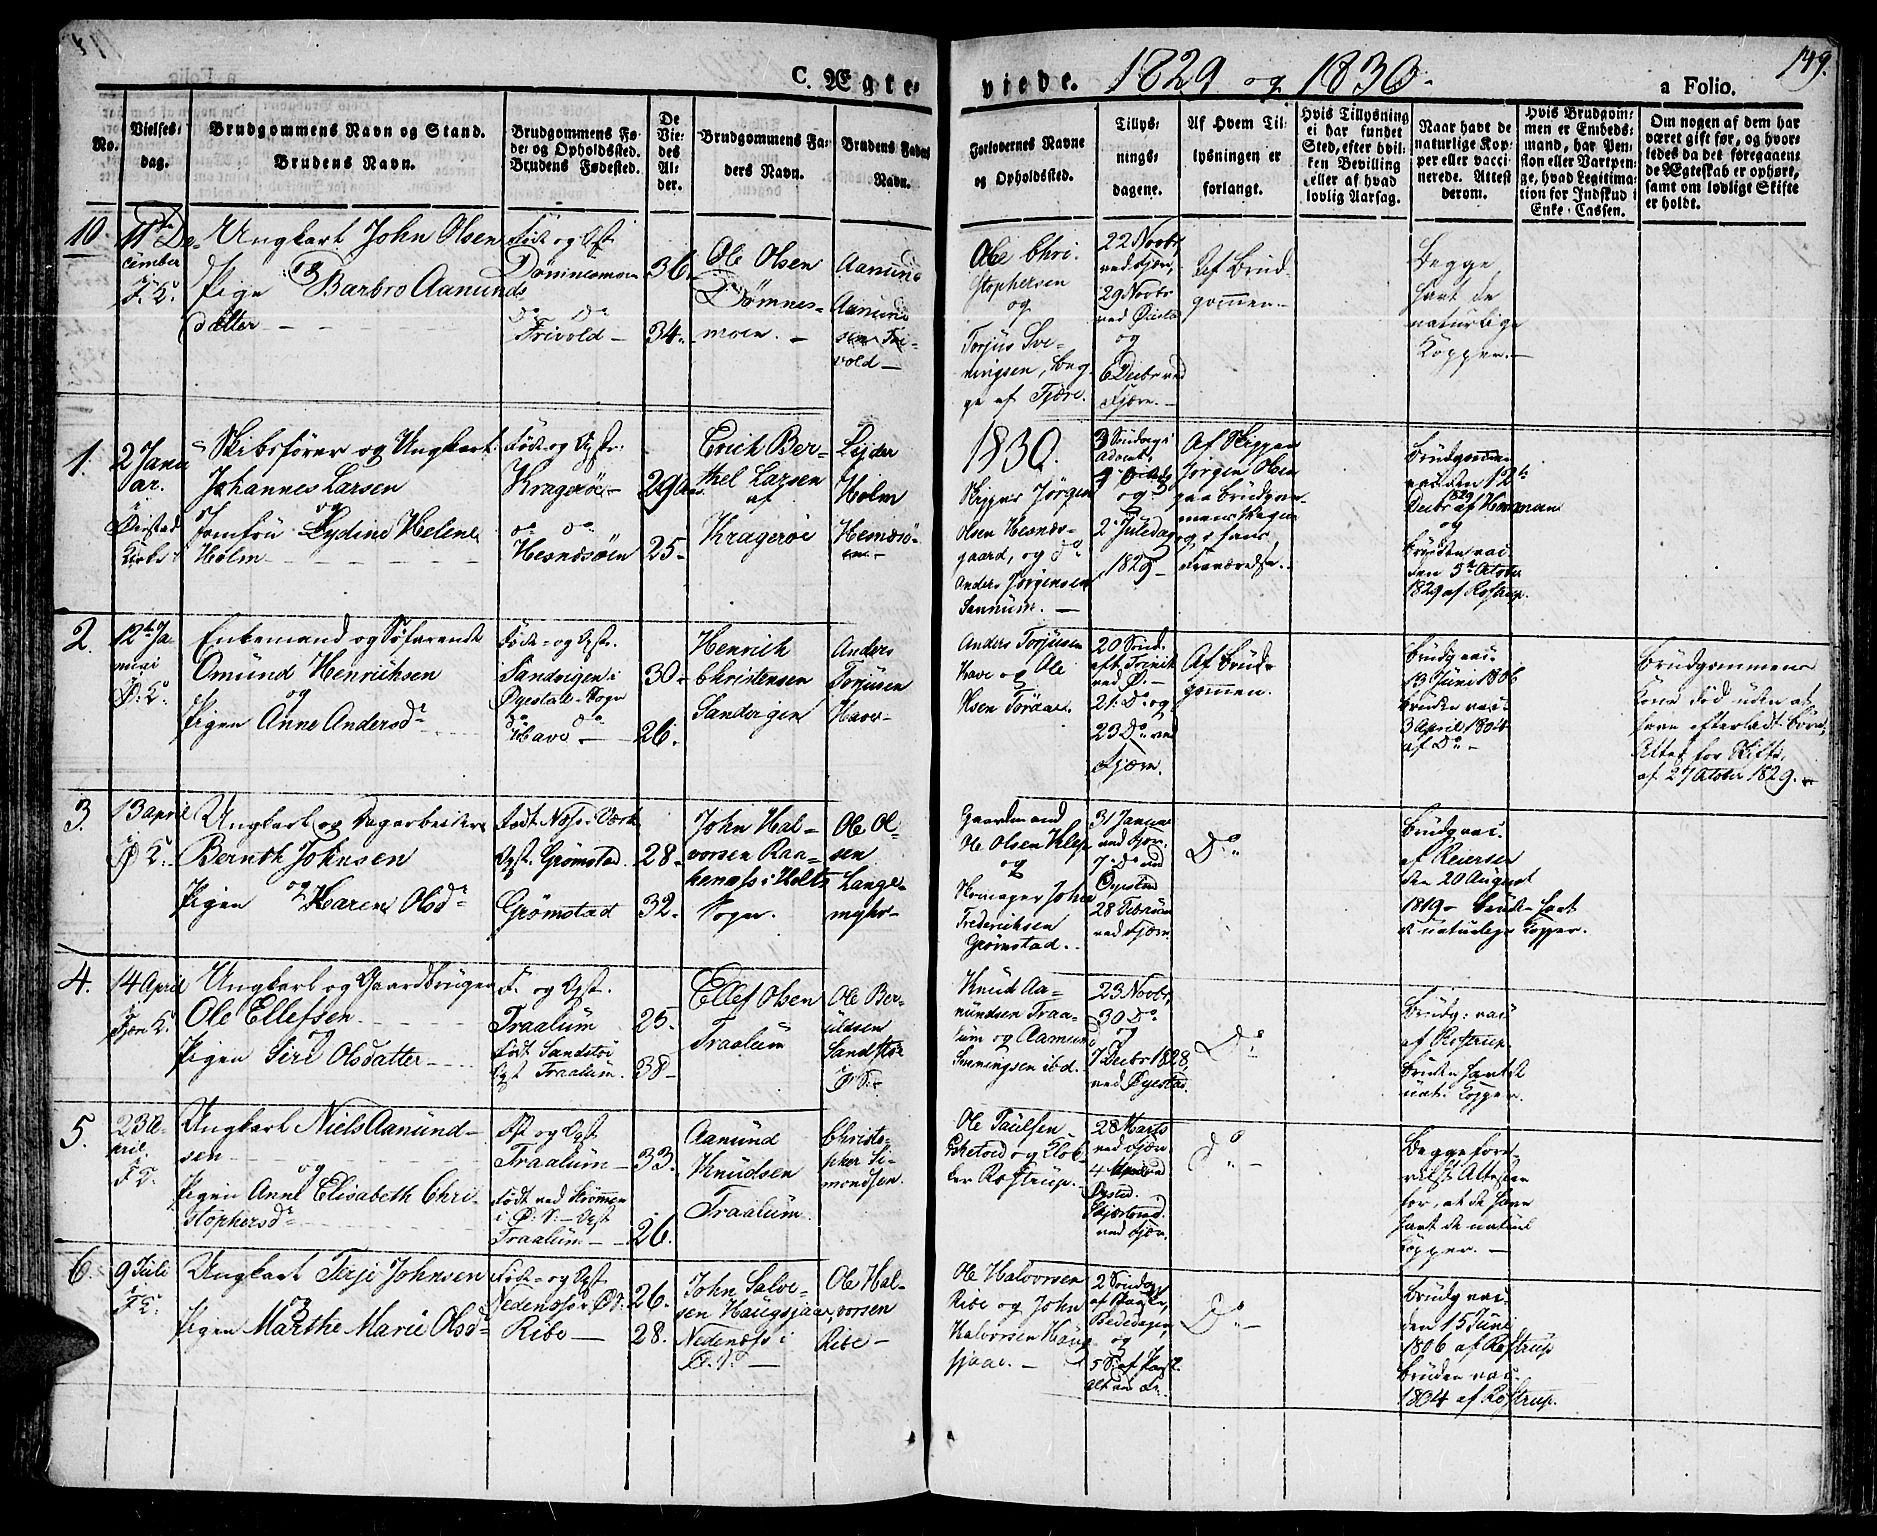 C. Ægte-
viede. 1829 og 1830.
a Folio.
149.
No.
Vielses-
dag.
Brudgommens Navn og Stand.
Brudens Navn.
Brudgommens Fø-
de- og Opholdssted.
Brudens Fødested.
De
Vie-
des
Al-
der.
Brudgommens Fa-
ders Navn.
Brudens Faders
Navn.
Forlovernes Navne
og Opholdssted.
Tillys-
nings-
dagene.
Af Hvem Til-
lysningen er
forlangt.
Hvis Tillysning
ei har fundet
Sted, efter hvil-
ken Bevilling
eller af hvad
lovlig Aarsag.
Naar havt de
naturlige Kop-
per eller vacci-
nerede. Attest
derom.
Hvis Brudgom-
men er Embeds-
mand, har Pen-
sion eller Vartpen-
ge, hvad Legitima-
tion for Indskud i
Enke-Cassen.
Om nogen af dem har
været gift før, og hvor-
ledes da det foregaaen-
de Ægteskab er ophørt,
samt om lovligt Skifte
er holdt.
10.
11te De-
cember
F. K.
Ungkarl John Olsen
og
Pige Barbro Aamunds-
datter
Født og Opst.
Dømnesmoen
Do Do
Frivold
36.
34.
Ole Olsen
Dømnes-
moen.
Aamund
Aamund
sen Fri-
vold
Ole Chri-
stophersen
og
Torjus Sve-
ningsen, beg-
ge af Fjære.
22 Novbr
ved Fjære,
29 Novbr
ved Øiestad
og
6 Decbr ved
Fjære.
Af Brud-
gommen
Begge
havt de
naturlige
Kopper.
1.
2 Janu
ar.
i
Øiestad
Kirke
Skibsfører og Ungkarl
Johannes Larsen
og
Jomfru Lydine Helene
Holm
Født og Opst.
Kragerøe
do do
Hesnesøen
29
25
Erich Ber-
thel Larsen
af
Kragerøe
Lejder
Holm
Hesnesø-
en
1830.
Skipper Jørgen
Olsen Hesnes-
gaard, og do
Anders Jørgensen
Sannum.
3 Søndag i
Advent,
og
2 Juledag
1829
Af Skipper
Jørgen Olsen
paa Brudgom-
mens Vegne
og i hans
Fraværelse.
Brudgommen
vac. den 12te
Decbr 1829 af Homman
og
Bruden vac.
den 5te October
1829 af Rostrup.
2.
12te Ja-
nuari
Ø. K.
Enkemand og Søfarende
Omund Henrichsen
og
Pigen Anne Andersdr
Født og Opst.
Sandvigen i
Øyestads Sogn
do do
Have
30.
26.
Henrich
Christensen
Sandvigen
Anders
Torjusen
Have
Anders Torjusen
Have og Ole
Olsen Toraas.
20 Sønd.
eft. Trinit.
ved Ø.
21. Do og
23 Do ved
Fjære.
Af Brud-
gommen.
Brudg. vac.
13 Juni 1806
Bruden vac.
3 April 1804
af Do
Brudgommens
Kone død uden at
have efterladt Børn,
Attest for Skifte,
af 27 October 1829.
3.
13 April
i
Ø K.
Ungkarl og Dagarbeider
Bernth Johnsen
og
Pigen Karen Olsdr
Født Næs's Værk
Opst. Grømstad.
Grømstad
28.
32.
John Hal-
vorsen Raa-
kenæss i Holts
Sogn.
Ole Ol-
sen
Lange-
myhr
Gaardmand
Ole Olsen Klep
og
Skomager John
Frederichsen
Grømstad.
31 Januar
ved Fjære.
7 Do ved
Øyestad
28 Februar
ved Fjære
Do
Brudg vac.
af Reiersen
den 20 August
1819 Brud. havt
de naturlige Kopper.
4.
14 April
i
Fjære K.
Ungkarl og Gaardbruger
Ole Ellefsen
Pigen Siri Olsdatter
F. og Opst.
Traalum
Født Sandstøe
Opst Traalum.
25.
38
Ellef Olsen
Traalum
Ole Ber-
uldsen
Sandstø
i Ø. S.
Knud Aa-
mundsen Traa-
lum og Aamund
Svenningsen ibd.
23 Novbr,
30 Do
og
7 Decbr 1828,
ved Øyestad.
Do
Brudg: vac.
af Rostrup.
Bruden havt
nat. Kopper.
5.
23 A-
pril.
i
F K.
Ungkarl Niels Aamund-
sen
og
Pigen Anne Elisabeth Chri-
stophersdr
Født og Opst
Traalum
Født ved Strømmen
i Ø: S: Opst
Traalum
33.
26.
Aamund
Knudsen
Traalum
Christo-
pher Si-
mondsen.
Ole Paulsen
og Klok-
ker Rostrup.
28 Marts
ved Fjære
4 April ved
Øyested.
Skjærtorsd.
ved Fjære.
Do
Begge fore-
viist Attester
for, at de have
havt de naturl
Kopper.
6.
9 Juli
i
F K.
Ungkarl Terje Johnsen
og
Pigen Marthe Marie Olsdr
Født og Opst
Nedenæs i Ø. S.
Ribe
26.
28.
John Salve-
sen Haugsjaae,
Nedenæss i
Ø. S.
Ole Hal-
vorsen
Ribe
Ole Halvorsen
Ribe og John
Halvorsen Haug-
sjaae.
2 Søndag
af Paaske,
Bededagen,
og
5 S. af Paaske
Alt ved Fj.
Do
Brudg vac.
den 15 Juni
1806 af Rostrup
Bruden vac.
1804 af Rostrup.